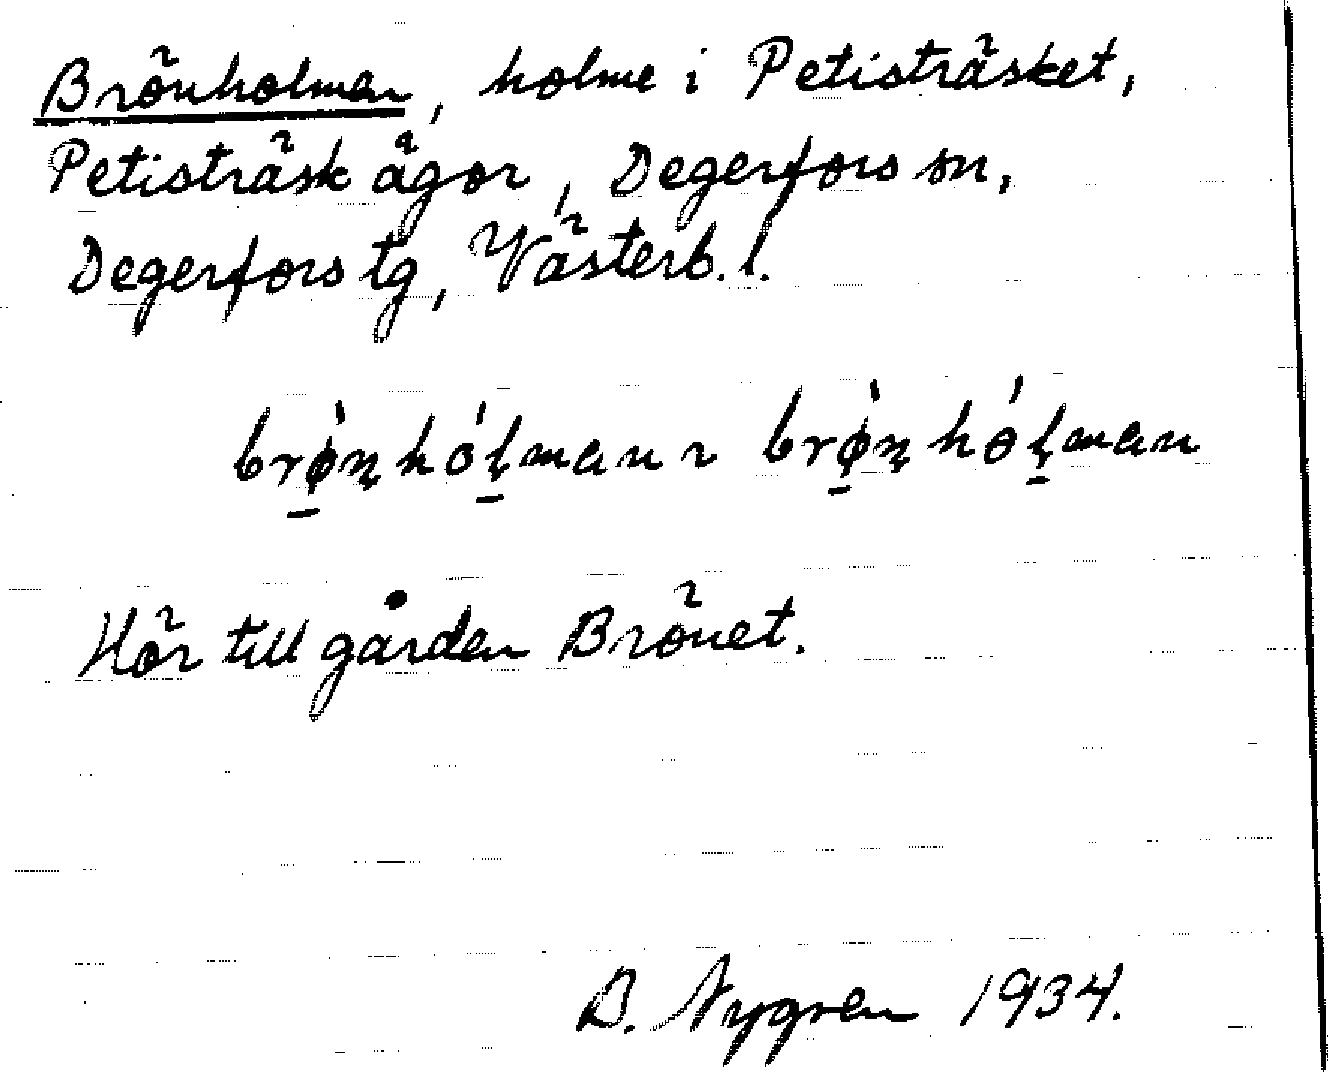 Brönholmen, holme i Petisträsket,
Petisträsk ägor, Degerfors sn,
Degerfors tg, Västerb. l.
brø̀n̥hólman ~ brø̀n̥hólman
Hör till gården Brönet.
B. Nygren 1934.